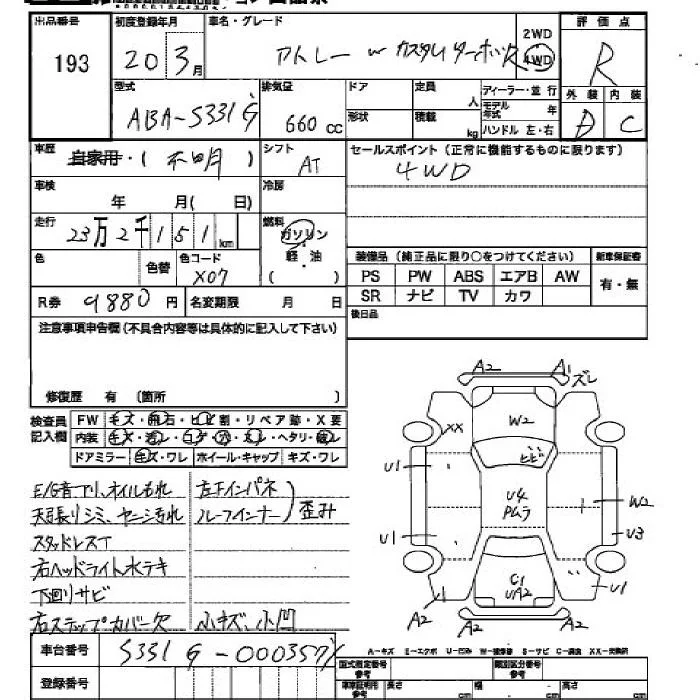 出品番号 初度登録年月 車名・グレード 2WD 4WD 評価点
193 20 3月 アトレー W カスタム ターボR R
型式 排気量 ドア 定員 人 ディーラー・並行 外装 内装
ABA-S331G 660cc 形状 積載 kg モデル年式 年 ハンドル 左・右 D C
車歴 自家用・(不明) シフト AT セールスポイント(正常に機能するものに限ります)
4WD
車検 年 月( 日) 冷房
走行 23万2千151km 燃料 ガソリン 軽油 ( )
色 色替 色コード X07 装備品(純正品に限り○をつけてください) 新車保証書
PS PW ABS エアB AW 有・無
SR ナビ TV カワ
R券 9880円 名変期限 月 日 後日品
注意事項申告欄(不具合内容等は具体的に記入して下さい)
修復歴 有 (箇所 )
検査員記入欄 FW キズ・飛石・ヒビ割・リペア跡・X要
内装 キズ・汚レ・コゲ・穴・スレ・ヘタリ・破レ
ドアミラー キズ・ワレ ホイール・キャップ キズ・ワレ
E/G音アリ、オイルもれ 左Fインパネ
天張りシミ、ヤニ汚れ ルーフインナー 歪み
スタッドレスT
右ヘッドライト水テキ
下廻りサビ
右ステップカバー欠 小キズ、小凹
A2 A1 ズレ
W2
XX
ヒビ
U1 U4 W2
Pムラ
U1 U3
C1 U1
UA2
A2 A2
A-キズ E-エクボ U-凹み W-補修跡 S-サビ C-腐食 XX-交換済
車台番号 S331G-0003571
登録番号
型式指定番号 参考 類別区分番号 参考
車庫証明用 参考 長さ cm 幅 cm 高さ cm